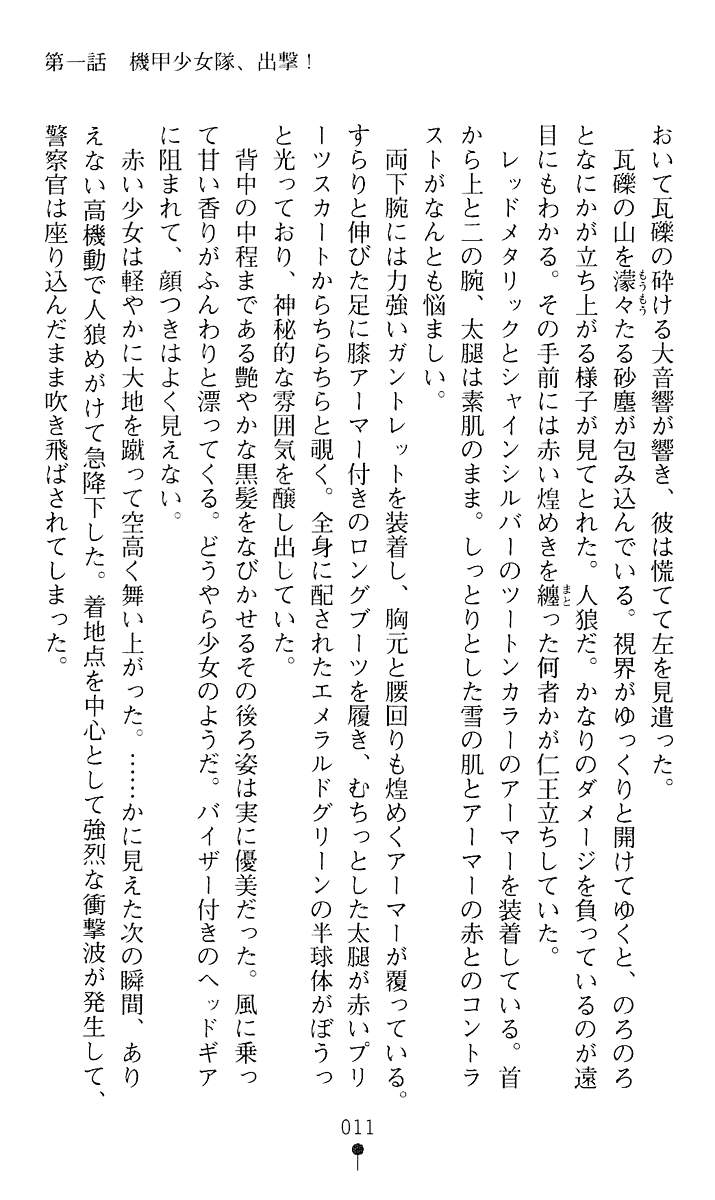 第一話　機甲少女隊、出撃！
おいて瓦礫の砕ける大音響が響き、彼は慌てて左を見遣った。
瓦礫の山を濛々たる砂塵が包み込んでいる。視界がゆっくりと開けてゆくと、のろのろ
もうもう
となにかが立ち上がる様子が見てとれた。人狼だ。かなりのダメージを負っているのが遠
目にもわかる。その手前には赤い煌めきを纏った何者かが仁王立ちしていた。
まと
レッドメタリックとシャインシルバーのツートンカラーのアーマーを装着している。首
から上と二の腕、太腿は素肌のまま。しっとりとした雪の肌とアーマーの赤とのコントラ
ストがなんとも悩ましい。
両下腕には力強いガントレットを装着し、胸元と腰回りも煌めくアーマーが覆っている。
すらりと伸びた足に膝アーマー付きのロングブーツを履き、むちっとした太腿が赤いプリ
ーツスカートからちらちらと覗く。全身に配されたエメラルドグリーンの半球体がぼうっ
と光っており、神秘的な雰囲気を醸し出していた。
背中の中程まである艶やかな黒髪をなびかせるその後ろ姿は実に優美だった。風に乗っ
て甘い香りがふんわりと漂ってくる。どうやら少女のようだ。バイザー付きのヘッドギア
に阻まれて、顔つきはよく見えない。
赤い少女は軽やかに大地を蹴って空高く舞い上がった。……かに見えた次の瞬間、あり
えない高機動で人狼めがけて急降下した。着地点を中心として強烈な衝撃波が発生して、
警察官は座り込んだまま吹き飛ばされてしまった。
011